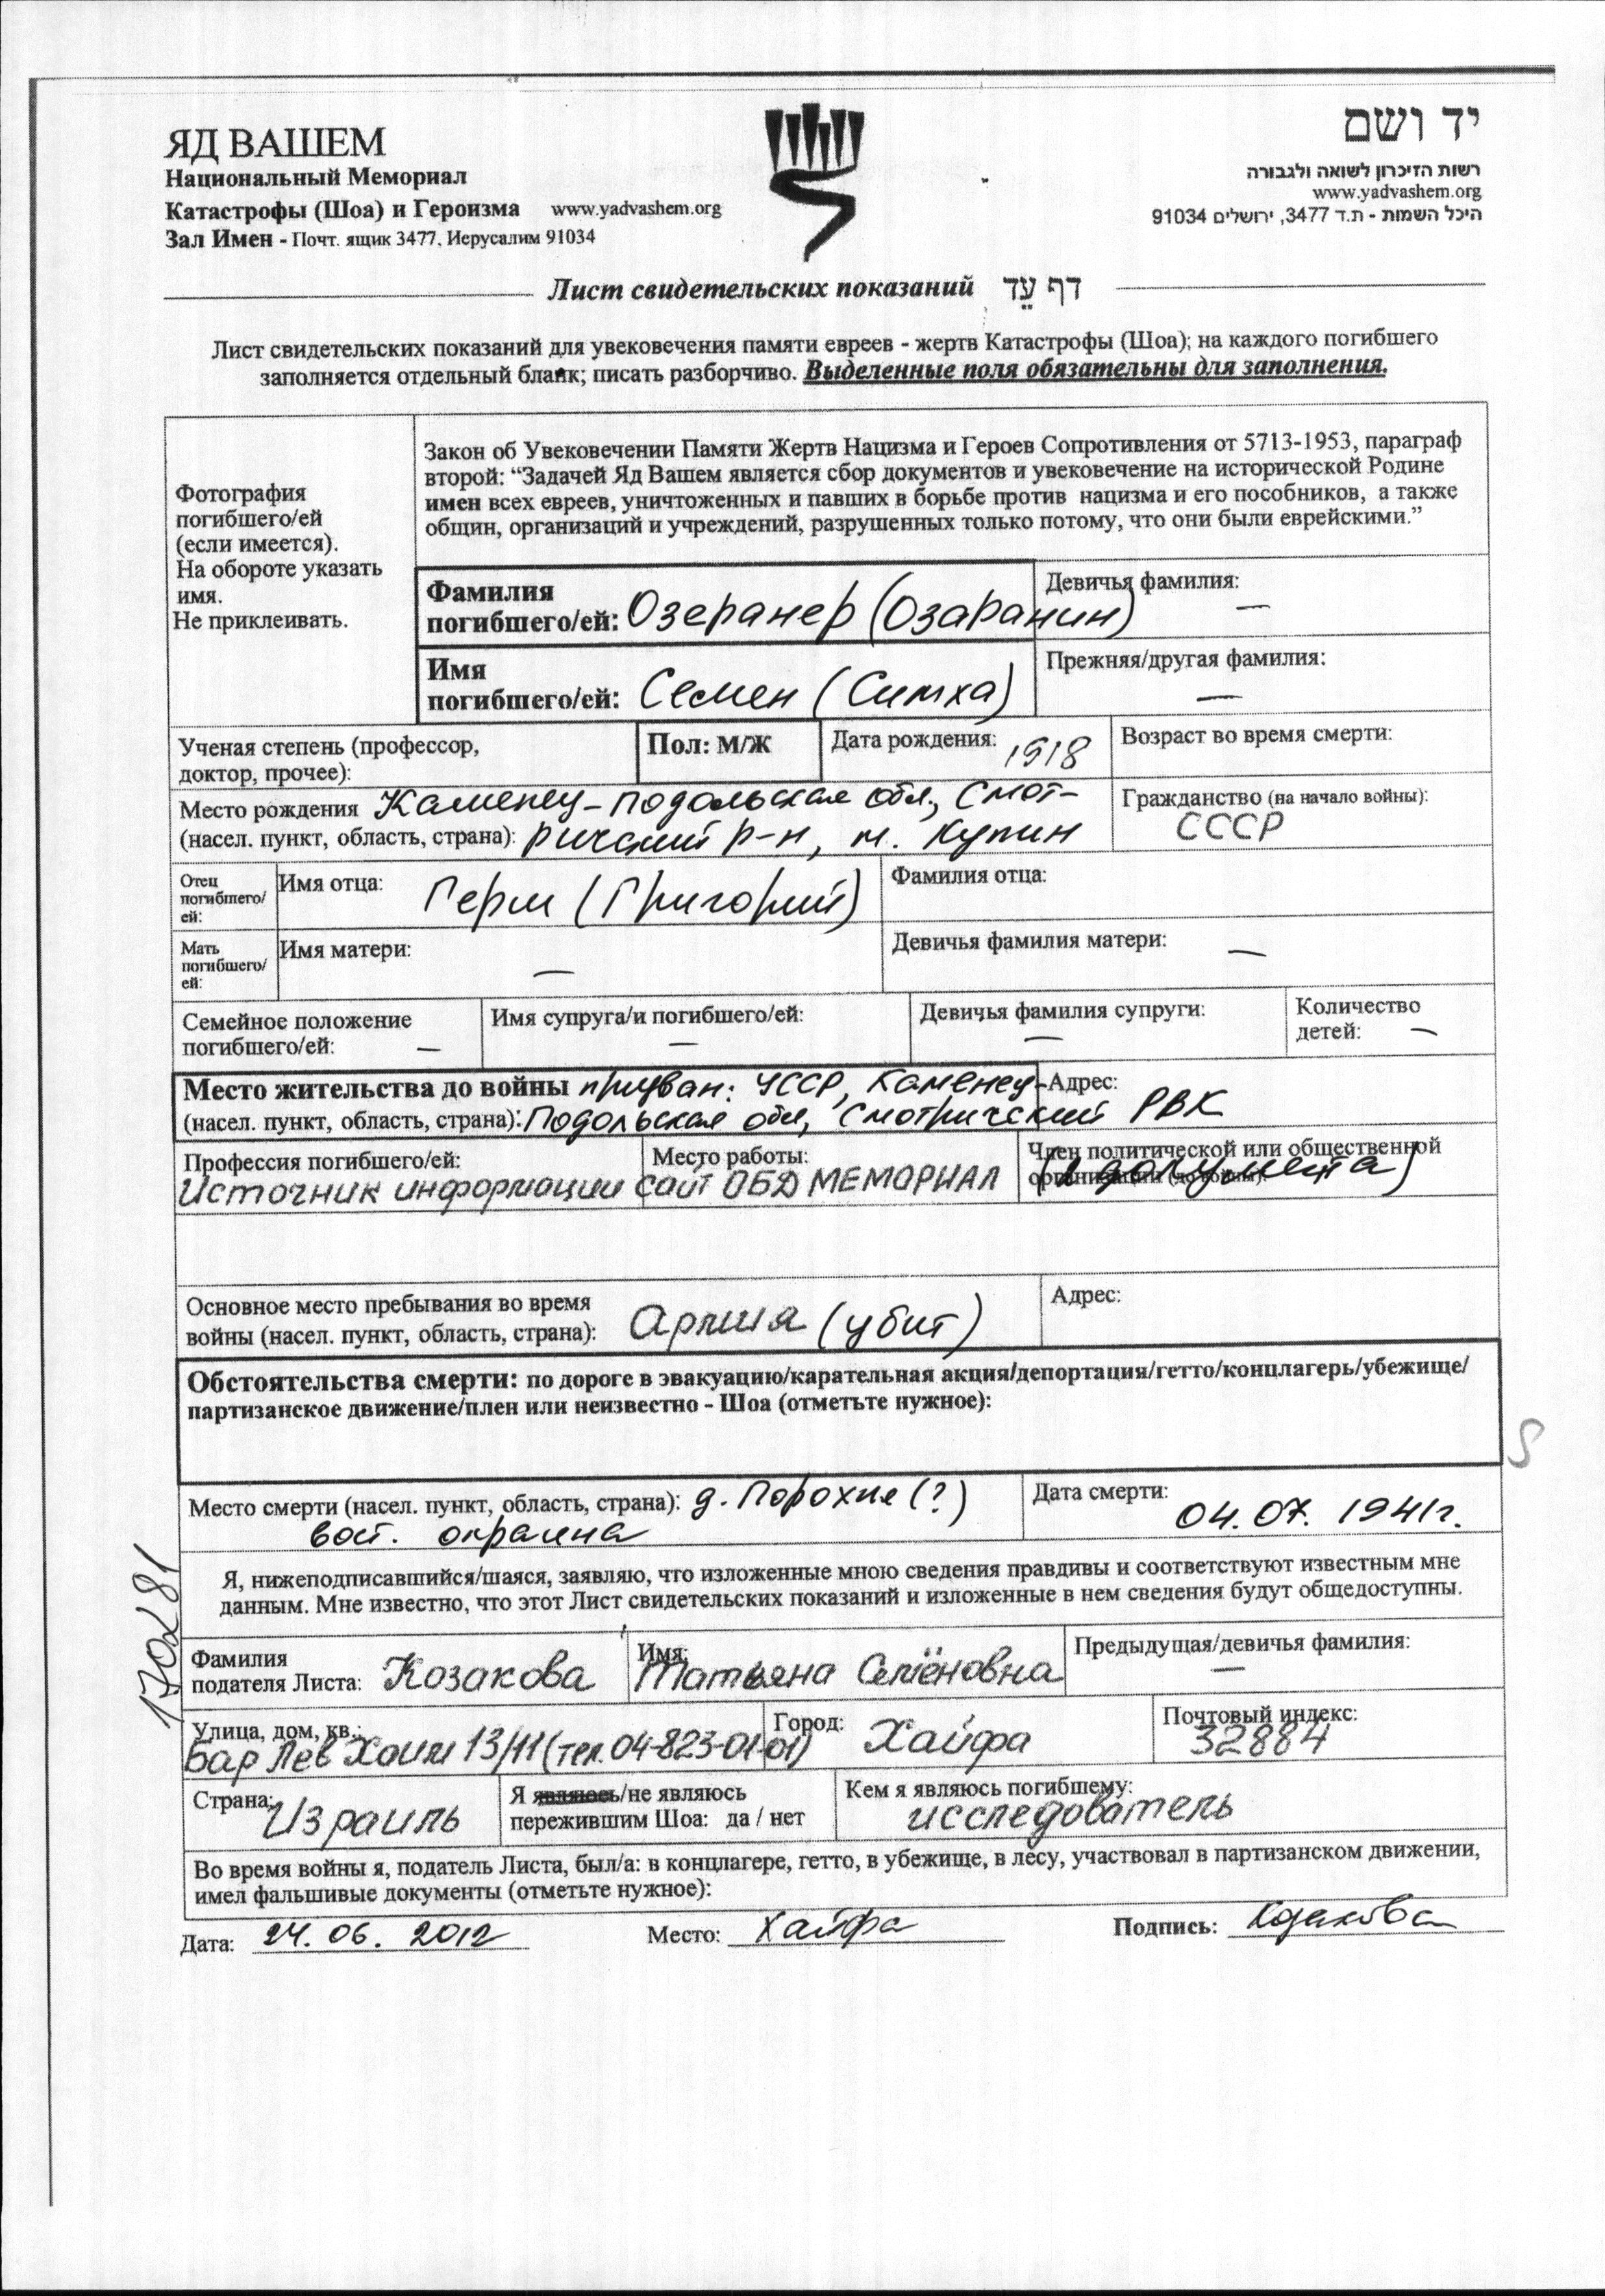 ЯД ВАШЕМ
Национальный Мемориал
Катастрофы (Шоа) и Героизма www.yadvashem.org
Зал Имен - Почт. ящик 3477, Иерусалим 91034
יד ושם
רשות הזיכרון לשואה ולגבורה
www.yadvashem.org
היכל השמות - ת.ד 3477, ירושלים 91034
Лист свидетельских показаний דף עֵד
Лист свидетельских показаний для увековечения памяти евреев - жертв Катастрофы (Шоа); на каждого погибшего
заполняется отдельный бланк; писать разборчиво. Выделенные поля обязательны для заполнения.
Фотография
погибшего/ей
(если имеется).
На обороте указать
имя.
Не приклеивать.
Закон об Увековечении Памяти Жертв Нацизма и Героев Сопротивления от 5713-1953, параграф
второй: “Задачей Яд Вашем является сбор документов и увековечение на исторической Родине
имен всех евреев, уничтоженных и павших в борьбе против нацизма и его пособников, а также
общин, организаций и учреждений, разрушенных только потому, что они были еврейскими.”
Фамилия
погибшего/ей: Озеранер (Озаранин)
Девичья фамилия: —
Имя
погибшего/ей: Семен (Симха)
Прежняя/другая фамилия:
—
Ученая степень (профессор,
доктор, прочее):
Пол: М/Ж
Дата рождения: 1918
Возраст во время смерти:
Место рождения Каменец-Подольская обл., Смот-
(насел. пункт, область, страна): ричский р-н, м. Купин
Гражданство (на начало войны):
СССР
Отец
погибшего/
ей:
Имя отца: Герш (Григорий)
Фамилия отца:
Мать
погибшего/
ей:
Имя матери: —
Девичья фамилия матери: —
Семейное положение
погибшего/ей: —
Имя супруга/и погибшего/ей:
—
Девичья фамилия супруги:
—
Количество
детей: —
Место жительства до войны призван: УССР, Каменец-
(насел. пункт, область, страна): Подольская обл, Смотричский РВК
Адрес:
Профессия погибшего/ей:
Место работы:
Член политической или общественной
Источник информации сайт ОБД МЕМОРИАЛ (2 документа)
Основное место пребывания во время
войны (насел. пункт, область, страна): Армия (убит)
Адрес:
Обстоятельства смерти: по дороге в эвакуацию/карательная акция/депортация/гетто/концлагерь/убежище/
партизанское движение/плен или неизвестно - Шоа (отметьте нужное):
S
Место смерти (насел. пункт, область, страна): д. Порохня (?)
вост. окраина
Дата смерти:
04.07. 1941г.
170281
Я, нижеподписавшийся/шаяся, заявляю, что изложенные мною сведения правдивы и соответствуют известным мне
данным. Мне известно, что этот Лист свидетельских показаний и изложенные в нем сведения будут общедоступны.
Фамилия
подателя Листа: Козакова
Имя:
Татьяна Семёновна
Предыдущая/девичья фамилия:
—
Улица, дом, кв.:
Бар Лев Хаим 13/11 (тел. 04-823-01-01)
Город: Хайфа
Почтовый индекс:
32884
Страна: Израиль
Я являюсь/не являюсь
пережившим Шоа: да / нет
Кем я являюсь погибшему:
исследователь
Во время войны я, податель Листа, был/а: в концлагере, гетто, в убежище, в лесу, участвовал в партизанском движении,
имел фальшивые документы (отметьте нужное):
Дата: 24. 06. 2012
Место: Хайфа
Подпись: Козакова